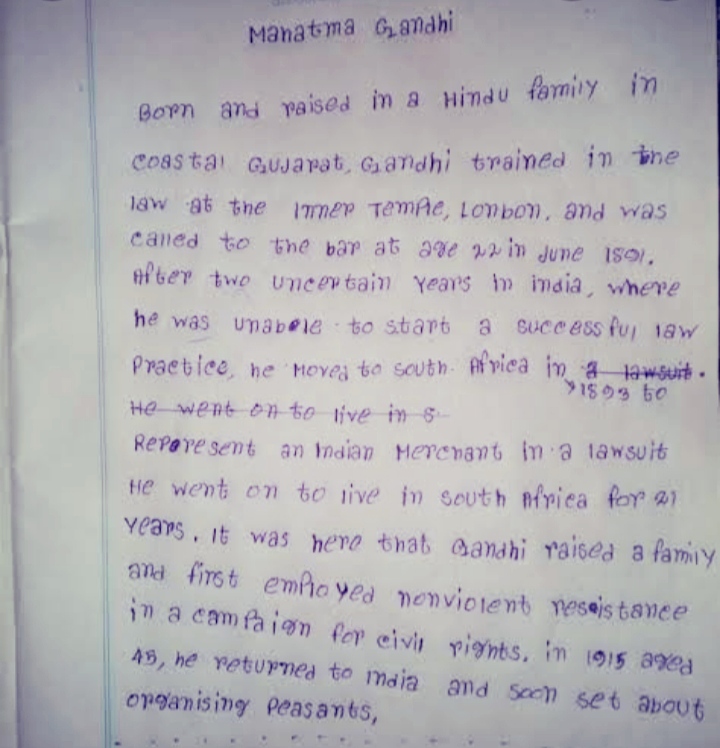 Mahatma Gandhi
Born and raised in a Hindu family in
coastal Gujarat, Gandhi trained in the
law at the Inner Temple, Lonbon, and was
called to the bar at age 22 in June 1891.
After two uncertain years in india, where
he was unabele to start a successful law
Practice, he Moved to south Africa in a lawsuit.
1893 to
He went on to live in s
Reporesent an Indian Merchant in a lawsuit
He went on to live in south Africa for 21
years. It was here that Gandhi raised a family
and first employed nonviolent reseistance
in a campaign for civil rights. in 1915 aged
45, he returned to india and soon set about
organising Peasants,